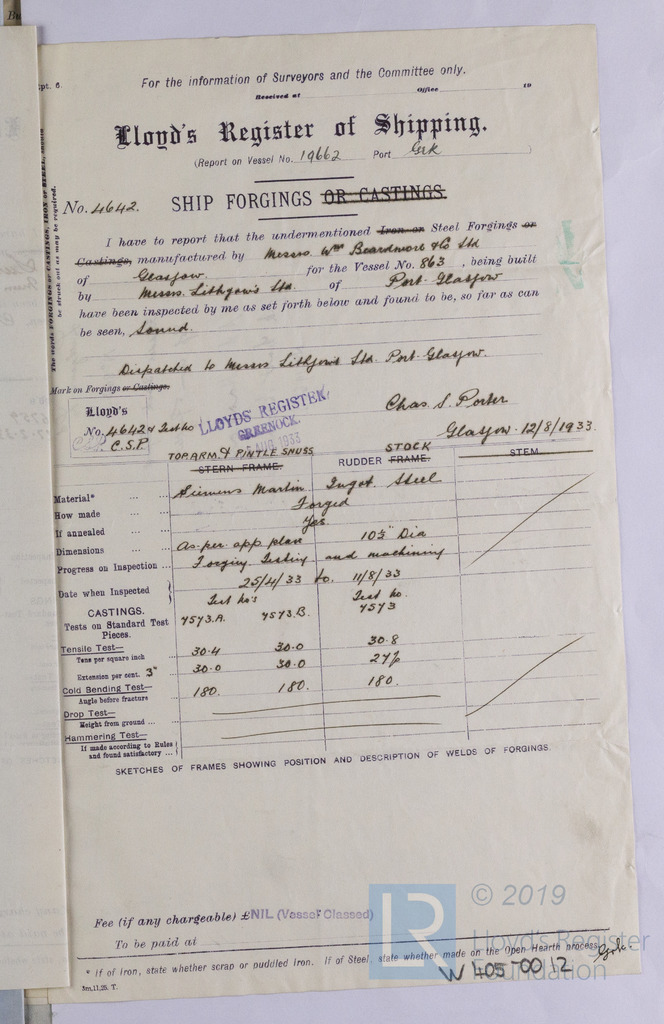 Rpt. 6.
For the information of Surveyors and the Committee only.
Received at Office 19
Lloyd's Register of Shipping.
(Report on Vessel No. 19662 Port Grk
No. 4642. SHIP FORGINGS OR CASTINGS.
I have to report that the undermentioned Iron or Steel Forgings or
Castings, manufactured by Messrs. Wm Beardmore & Co Ltd
of Glasgow for the Vessel No. 863, being built
by Messrs. Lithgow's Ltd. of Port-Glasgow
have been inspected by me as set forth below and found to be, so far as can
be seen, Sound.
Despatched to Messrs Lithgow's Ltd. Port-Glasgow.
Mark on Forgings or Castings.
Lloyd's
No. 4642 & Test No
C.S.P.
LLOYD'S REGISTER,
GREENOCK.
AUG 1933
Chas. S. Porter
Glasgow - 12/8/1933.
TOP ARM & PINTLE SNUGS STOCK
STERN FRAME. RUDDER FRAME. STEM
Material* ... ... Siemens Martin Ingot Steel
How made ... ... Forged
If annealed ... ... Yes
Dimensions ... ... As per app plan 10½" Dia
Progress on Inspection ... Forging Testing and machining
Date when Inspected 25/4/33 to. 11/8/33
CASTINGS. Test No's Test No.
Tests on Standard Test Pieces. 7573.A. 7573.B. 7573
Tensile Test— 30.4 30.0 30.8
Tons per square inch
Extension per cent. 3" 30.0 30.0 27%
Cold Bending Test— 180. 180. 180.
Angle before fracture
Drop Test—
Height from ground ...
Hammering Test—
If made according to Rules
and found satisfactory ...
SKETCHES OF FRAMES SHOWING POSITION AND DESCRIPTION OF WELDS OF FORGINGS.
Fee (if any chargeable) £ NIL (Vessel Classed)
To be paid at
* If of Iron, state whether scrap or puddled iron. If of Steel, state whether made on the Open Hearth process. Grk.
5m.11.25. T.
W405-0012
LR
© 2019
Lloyd's Register
Foundation
The words FORGINGS or CASTINGS, IRON or STEEL, should
be struck out as may be required.